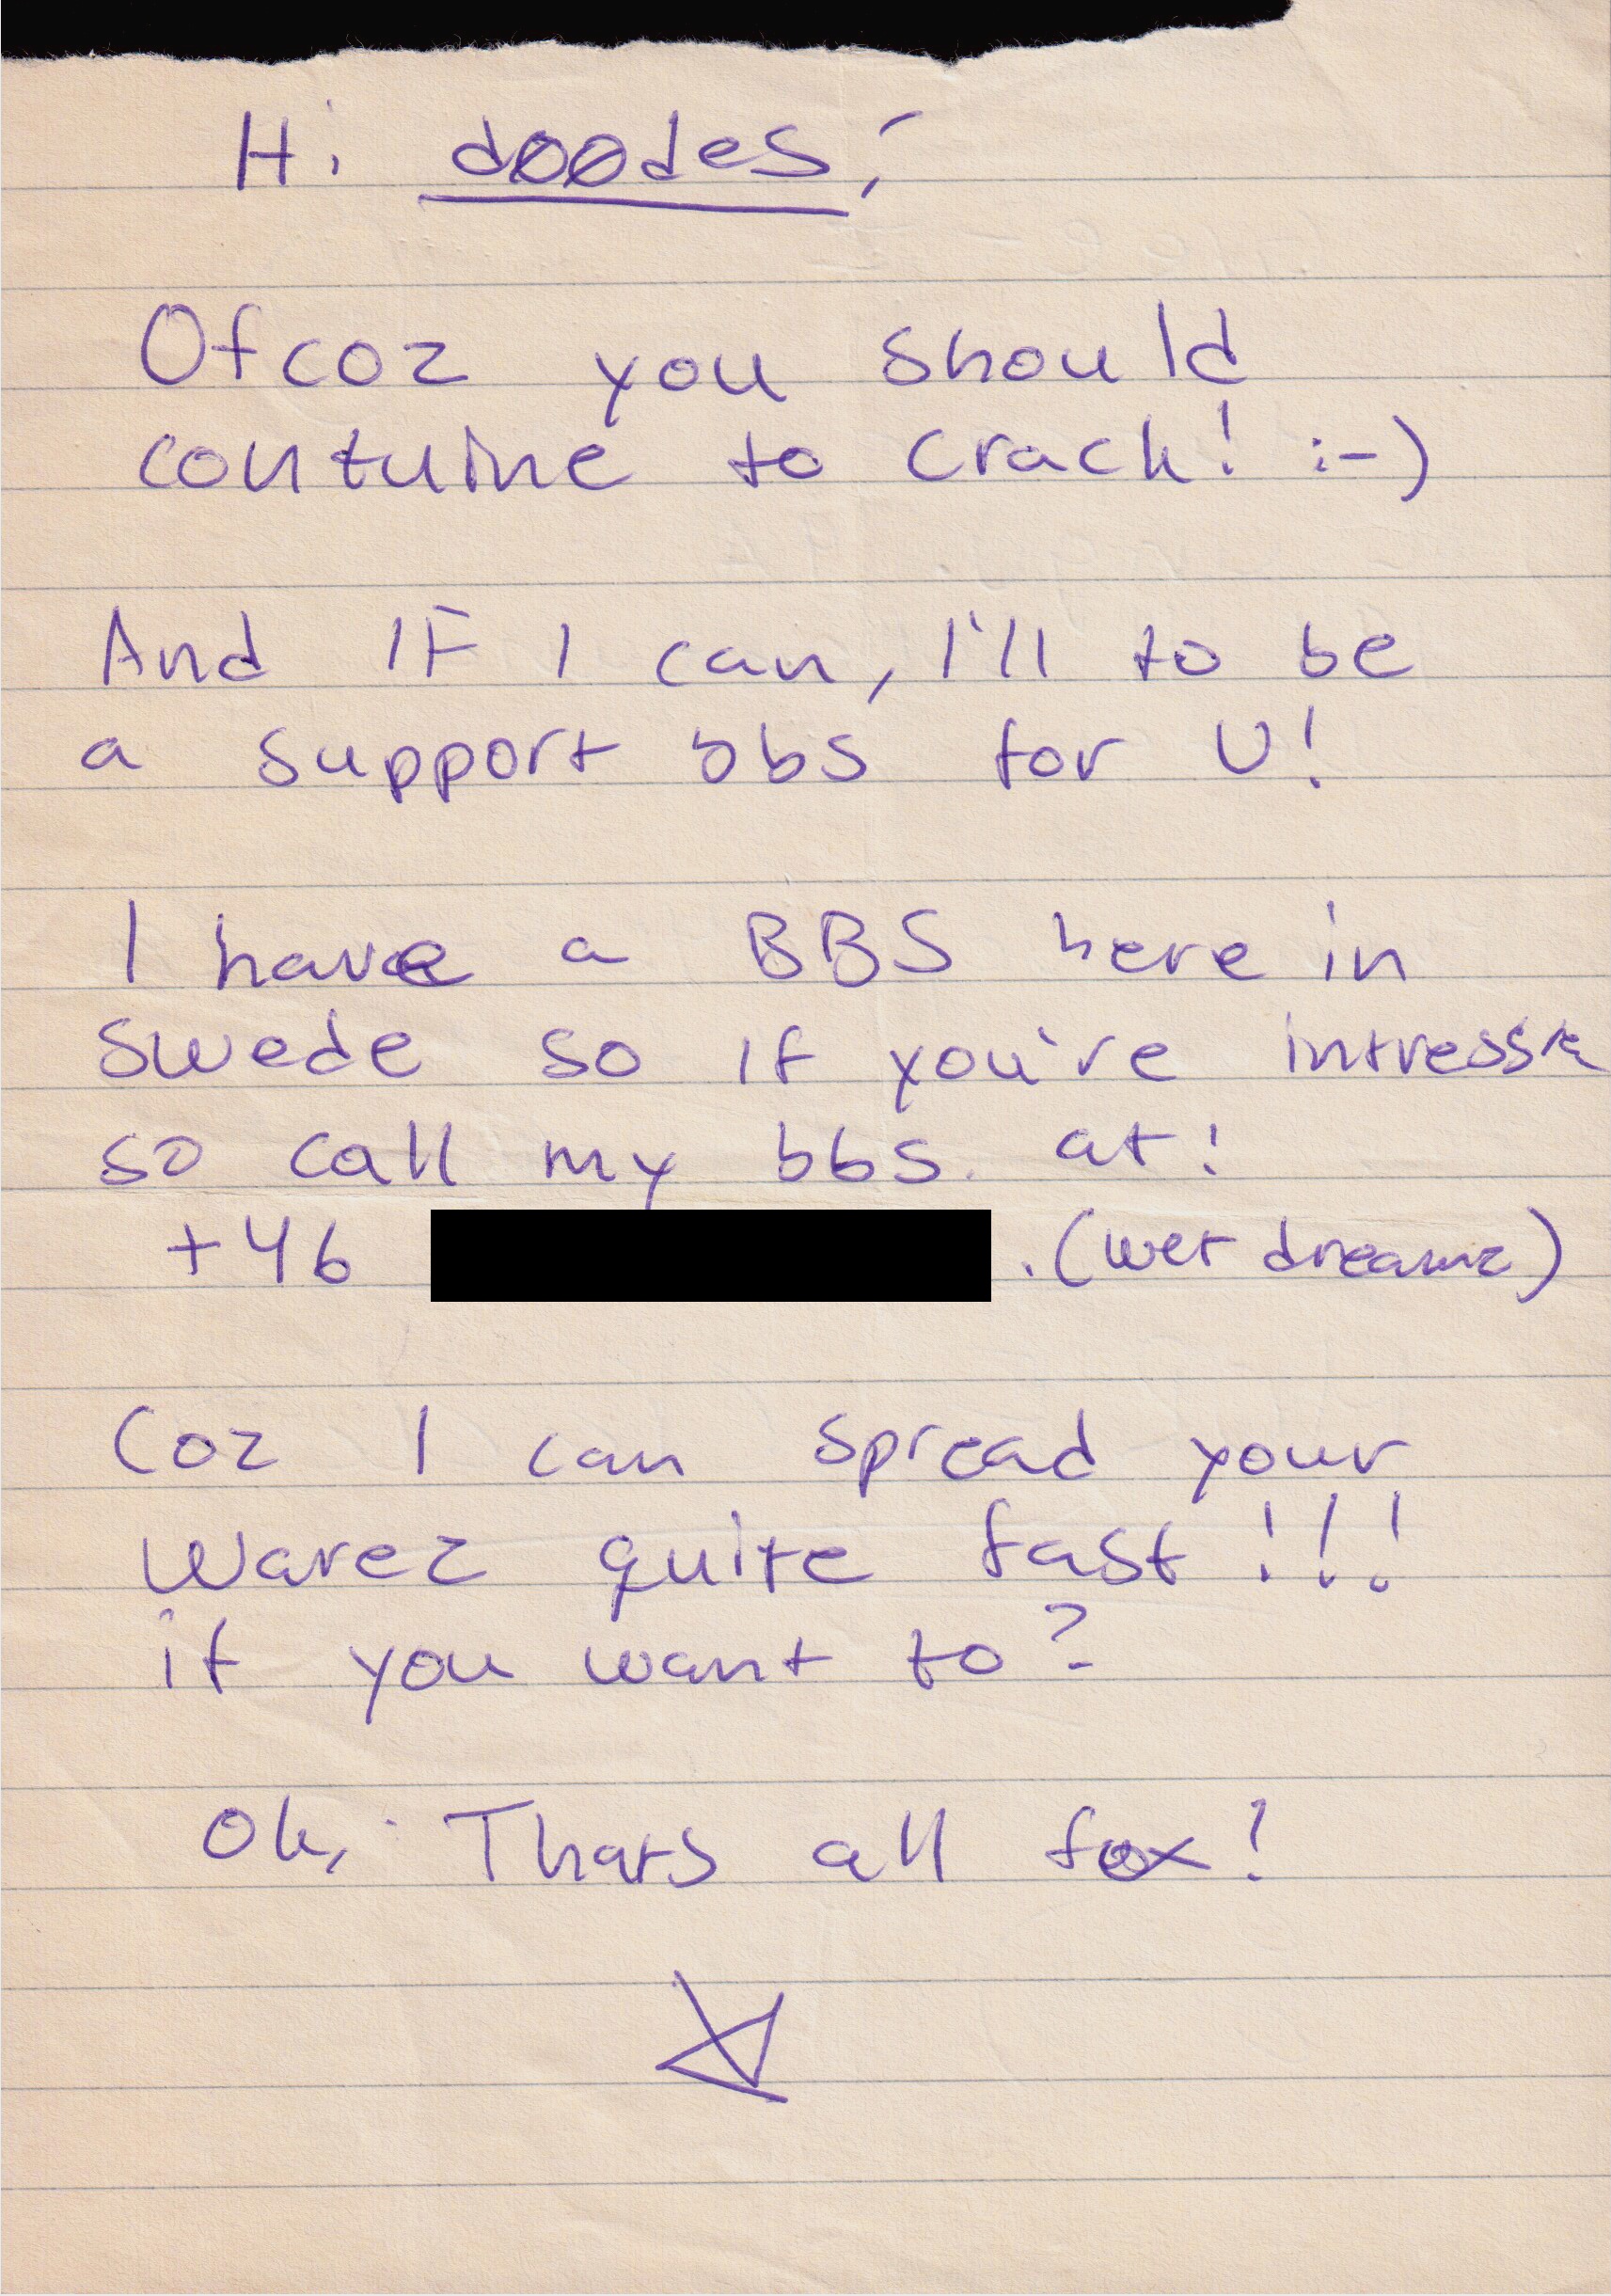 Hi døødes!
Ofcoz you should
contuine to crack! :-)
And IF I can, I'll to be
a support bbs for U!
I have a BBS here in
Swede so if you're intresse
so call my bbs. at:
+46 . (wet dreamz)
Coz I can spread your
Warez quite fast!!!
if you want to?
Ok, Thats all fox!